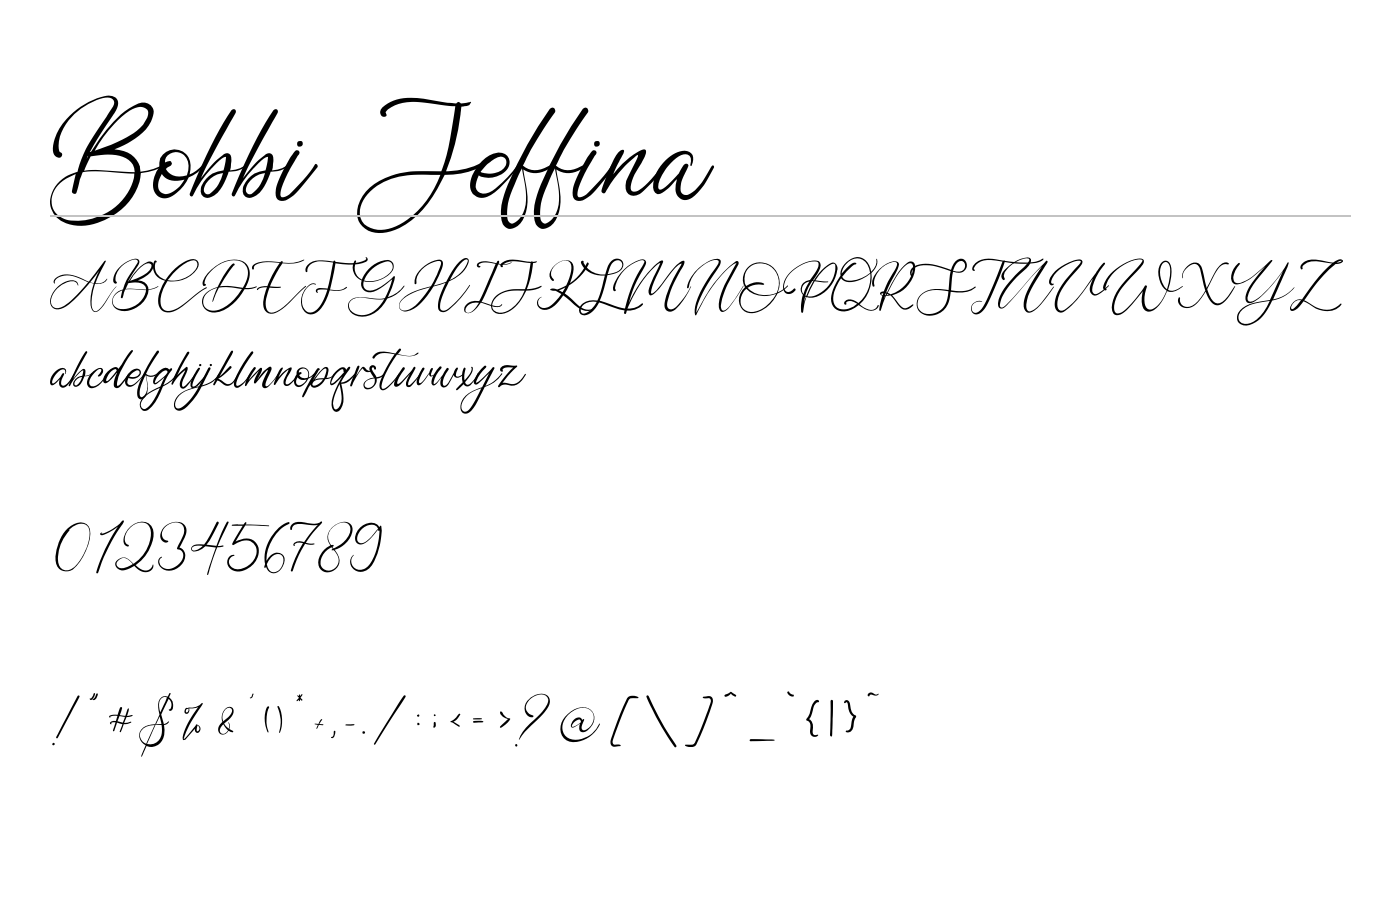 Bobbi Jeffina
ABCDEFGHIJKLMNOPQRSTUVWXYZ
abcdefghijklmnopqrstuvwxyz
0123456789
!"#$%&'()*+,-./:;<=>?@[\]^_`{|}~